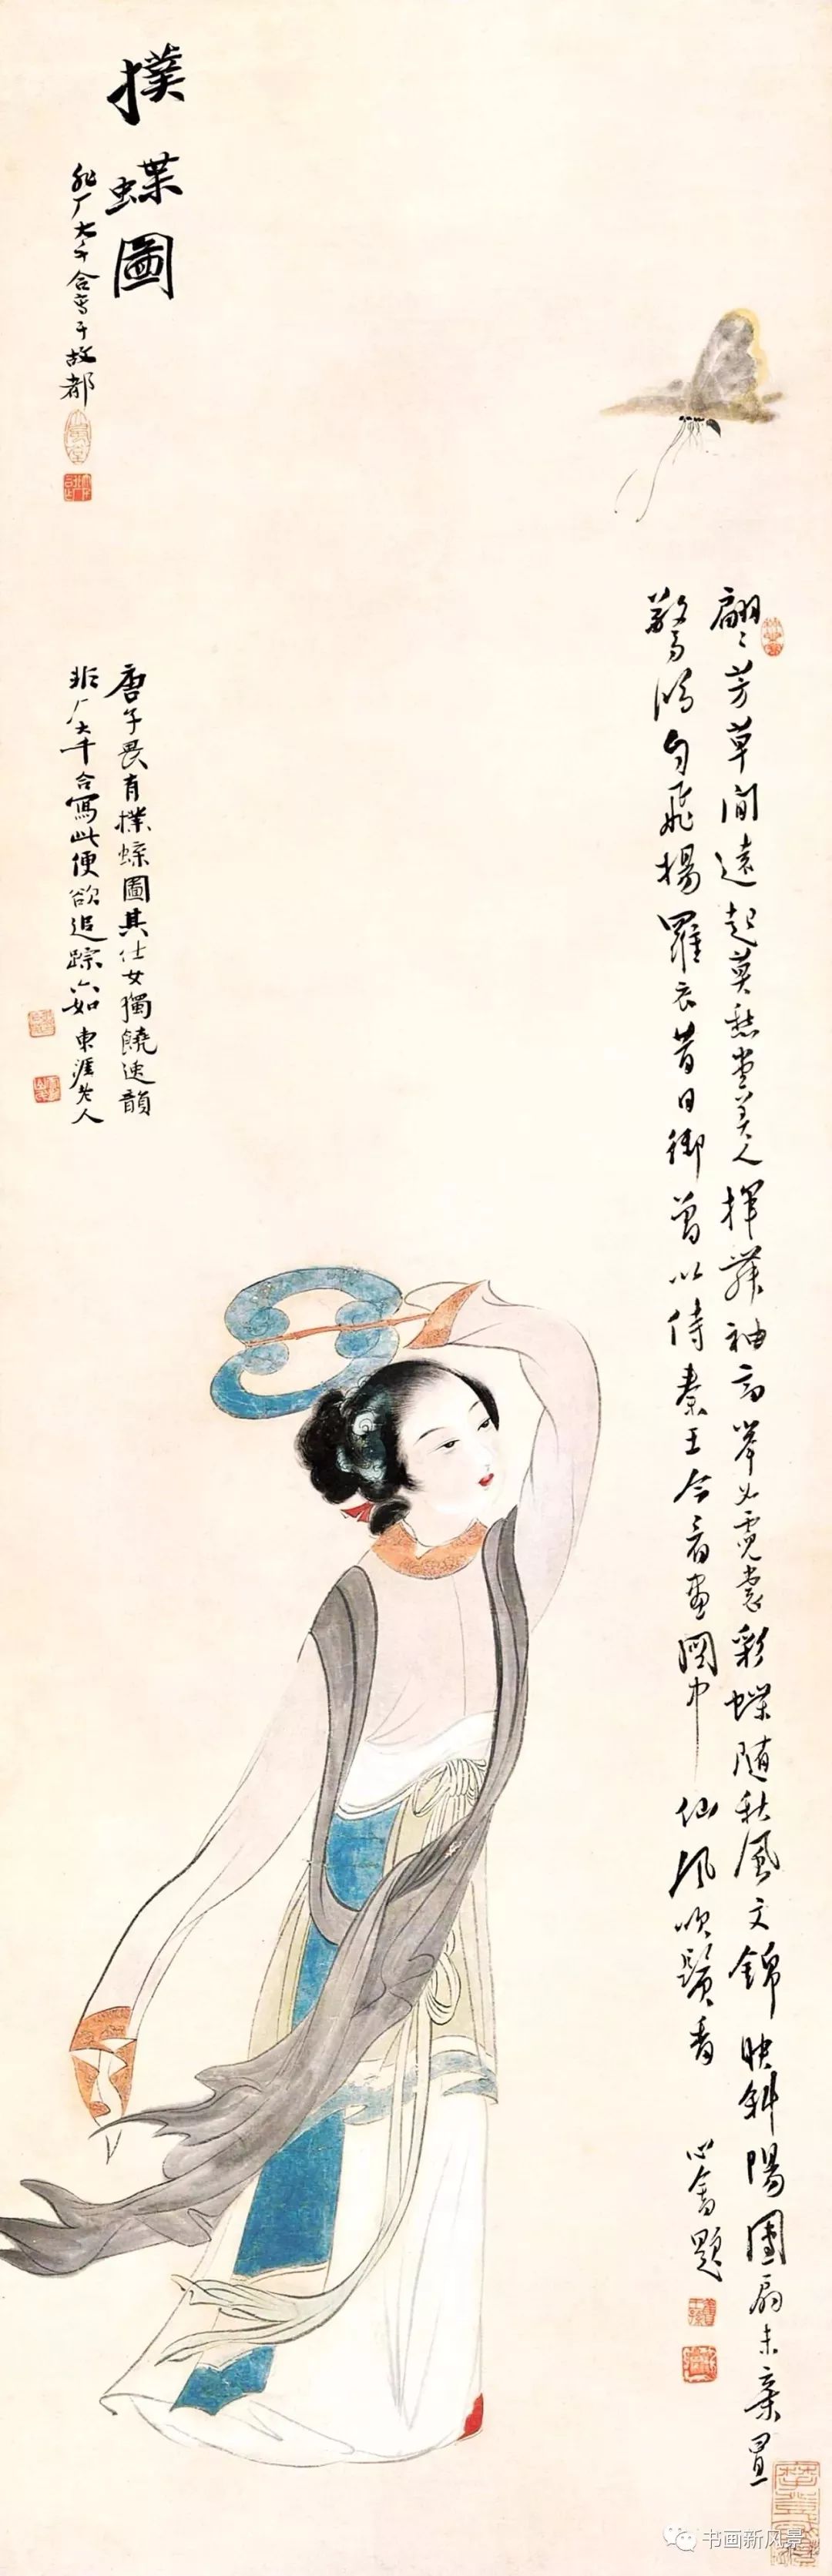 撲蝶圖
非厂大千合寫于故都
唐子畏有撲蝶圖其仕女獨饒逸韻
非厂大千合寫此便欲追踪六如 東涯老人
翩〻芳草間遠起莫愁堂美人揮舞袖高舉如霓裳彩蝶隨秋風文錦映斜陽團扇未棄置
驚鴻勻飛揚羅衣昔日御曾以侍秦王今看畫圖中仙風吹鬢香
心畬題
书画新风景